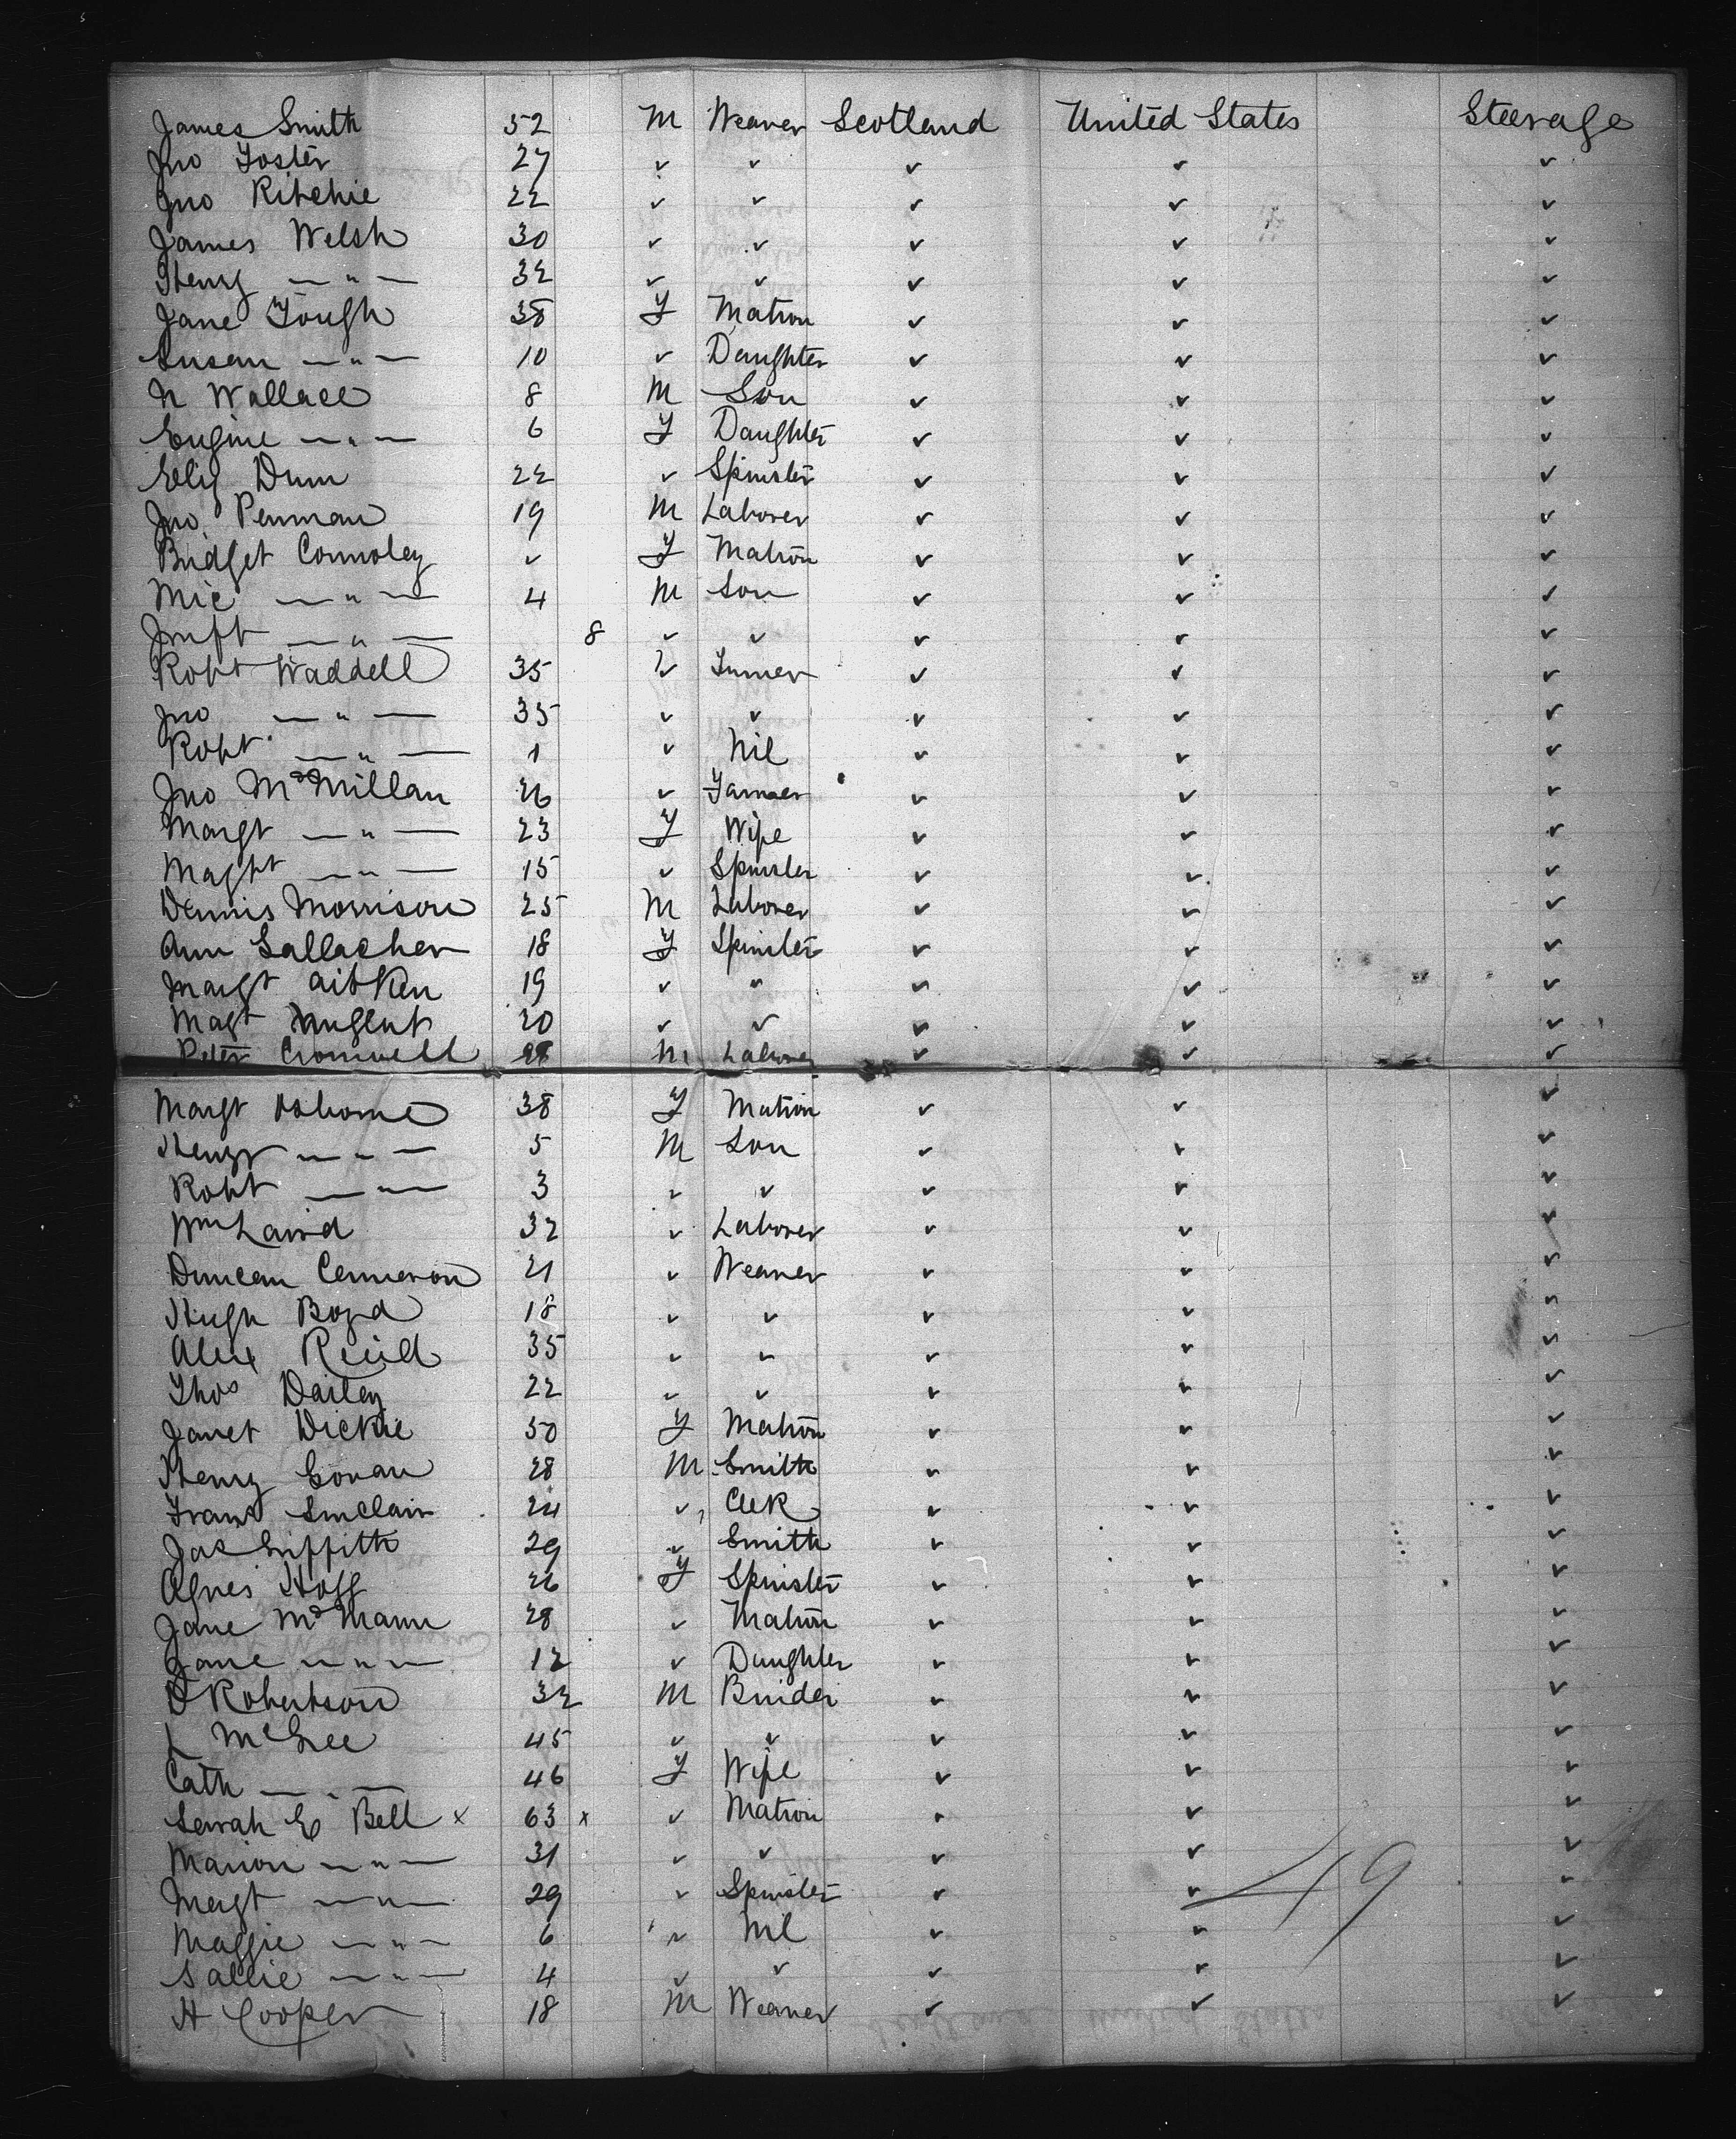 James Smith 52 M Weaver Scotland United States Steerage
Jno Foster 27 ✓ ✓ ✓ ✓ ✓
Jno Ritchie 22 ✓ ✓ ✓ ✓ ✓
James Welsh 30 ✓ ✓ ✓ ✓ ✓
Henry — " — 32 ✓ ✓ ✓ ✓ ✓
Jane Tough 38 F Matron ✓ ✓ ✓
Susan — " — 10 ✓ Daughter ✓ ✓ ✓
N Wallace 8 M Son ✓ ✓ ✓
Eugine — " — 6 F Daughter ✓ ✓ ✓
Eliz Dunn 22 ✓ Spinster ✓ ✓ ✓
Jno Penman 19 M Laborer ✓ ✓ ✓
Bridget Connoley ✓ F Matron ✓ ✓ ✓
Mic — " — 4 M Son ✓ ✓ ✓
Inft — " — 8 ✓ ✓ ✓ ✓ ✓
Robt Waddell 35 ✓ ✓ ✓ ✓
Jno — " — 35 ✓ ✓ ✓ ✓ ✓
Robt — " — 1 ✓ Nil ✓ ✓ ✓
Jno McMillan 26 ✓ Farmer ✓ ✓ ✓
Margt — " — 23 F Wife ✓ ✓ ✓
Maght — " — 15 ✓ Spinster ✓ ✓ ✓
Dennis Morrison 25 M Laborer ✓ ✓ ✓
Ann Gallacher 18 F Spinster ✓ ✓ ✓
Margt Aitken 19 ✓ " ✓ ✓ ✓
Magt 20 ✓ ✓ ✓ ✓ ✓
Peter Cromwell M Laborer ✓ ✓ ✓
Margt Osborne 38 F Matron ✓ ✓ ✓
Henry — " — 5 M Son ✓ ✓ ✓
Robt — " — 3 ✓ ✓ ✓ ✓ ✓
Wm Laird 32 ✓ Laborer ✓ ✓ ✓
Duncan Cameron 21 ✓ Weaver ✓ ✓ ✓
Hugh Boyd 18 ✓ ✓ ✓ ✓ ✓
Alex Reid 35 ✓ ✓ ✓ ✓ ✓
Thos Dailey 22 ✓ ✓ ✓ ✓ ✓
Janet Dickie 50 F Matron ✓ ✓ ✓
Henry Govan 28 M Smith ✓ ✓ ✓
Frans Sinclair 24 ✓ Clk ✓ ✓ ✓
Jas Griffith 29 ✓ Smith ✓ ✓ ✓
Agnes Hogg 26 F Spinster ✓ ✓ ✓
Jane McMann 28 ✓ Matron ✓ ✓ ✓
Jane — " — 12 ✓ Daughter ✓ ✓ ✓
D Robertson 32 M Binder ✓ ✓ ✓
L McGee 45 ✓ ✓ ✓ ✓ ✓
Cath — " — 46 F Wife ✓ ✓ ✓
Sarah E Bell x 63 x ✓ Matron ✓ ✓ ✓
Marion — " — 31 ✓ ✓ ✓ ✓ ✓
Margt — " — 29 ✓ Spinster ✓ ✓ ✓
49
Maggie — " — 6 ✓ Nil ✓ ✓ ✓
Sallie — " — 4 ✓ ✓ ✓ ✓ ✓
H Cooper 18 M Weaver ✓ ✓ ✓